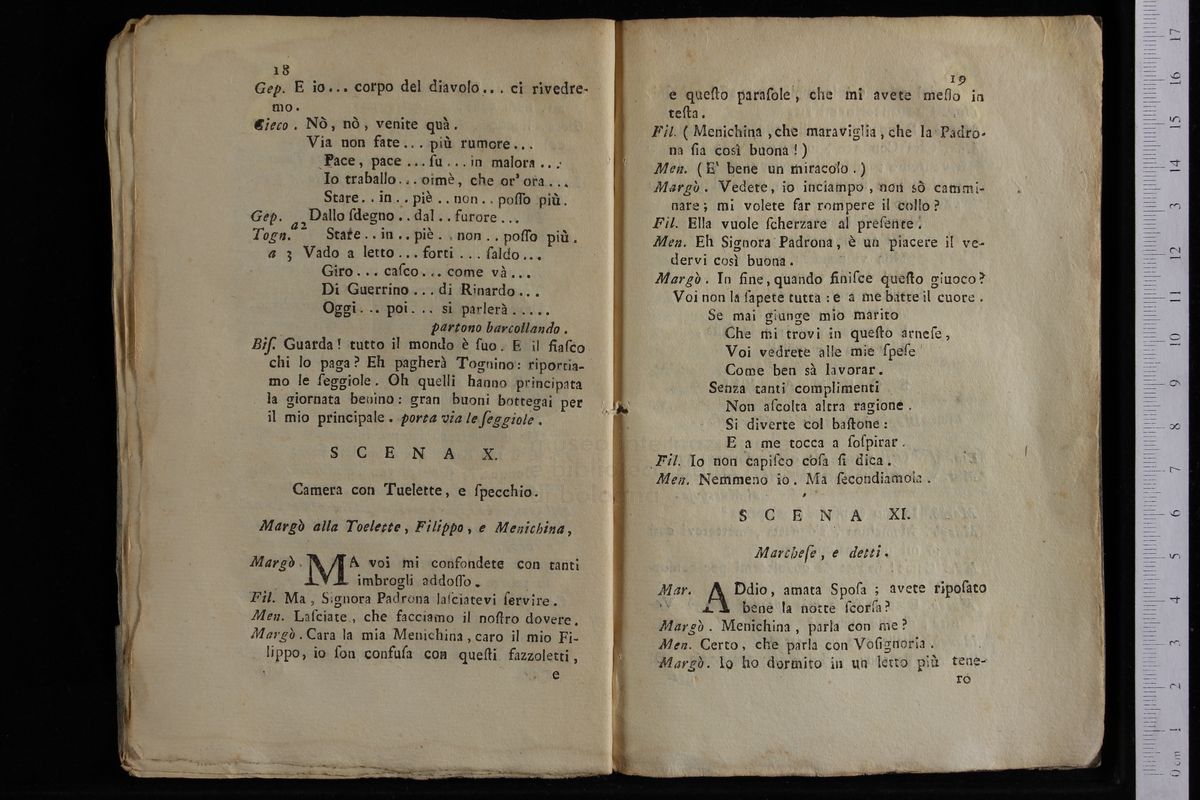 18
Gep. E io... corpo del diavolo... ci rivedre-
mo.
Cieco. Nò, nò, venite quà.
Via non fate... più rumore...
Pace, pace ... ſu ... in malora ...
Io traballo... oimè, che or' ora...
Stare.. in.. piè.. non.. poſſo più.
Gep. Dallo ſdegno.. dal.. furore...
a2
Togn. State.. in.. piè.. non.. poſſo più.
a 3 Vado a letto... forti ... ſaldo...
Giro ... caſco... come và...
Di Guerrino ... di Rinardo...
Oggi... poi... si parlerà.....
partono barcollando.
Biſ. Guarda! tutto il mondo è ſuo. E il fiaſco
chi lo paga? Eh pagherà Tognino: riportia-
mo le ſeggiole. Oh quelli hanno principata
la giornata benino: gran buoni bottegai per
il mio principale. porta via le ſeggiole.
SCENA X.
Camera con Tuelette, e ſpecchio.
Margò alla Toelette, Filippo, e Menichina,
Margò. MA voi mi confondete con tanti
imbrogli addoſſo.
Fil. Ma, Signora Padrona laſciatevi ſervire.
Men. Laſciate, che facciamo il noſtro dovere.
Margò. Cara la mia Menichina, caro il mio Fi-
lippo, io ſon confuſa con queſti fazzoletti,
e
19
e queſto paraſole, che mi avete meſſo in
teſta.
Fil. (Menichina, che maraviglia, che la Padro-
na ſia così buona!)
Men. (E' bene un miracolo.)
Margò. Vedete, io inciampo, non sò cammi-
nare; mi volete far rompere il collo?
Fil. Ella vuole ſcherzare al preſente.
Men. Eh Signora Padrona, è un piacere il ve-
dervi così buona.
Margò. In fine, quando finiſce queſto giuoco?
Voi non la ſapete tutta: e a me batte il cuore.
Se mai giunge mio marito
Che mi trovi in queſto arneſe,
Voi vedrete alle mie ſpeſe
Come ben sà lavorar.
Senza tanti complimenti
Non aſcolta altra ragione.
Si diverte col baſtone:
E a me tocca a ſoſpirar.
Fil. Io non capiſco coſa ſi dica.
Men. Nemmeno io. Ma ſecondiamola.
SCENA XI.
Marcheſe, e detti.
Mar. ADdio, amata Spoſa; avete ripoſato
bene la notte ſcorſa?
Margò. Menichina, parla con me?
Men. Certo, che parla con Voſignoria.
Margò. Io ho dormito in un letto più tene-
ro